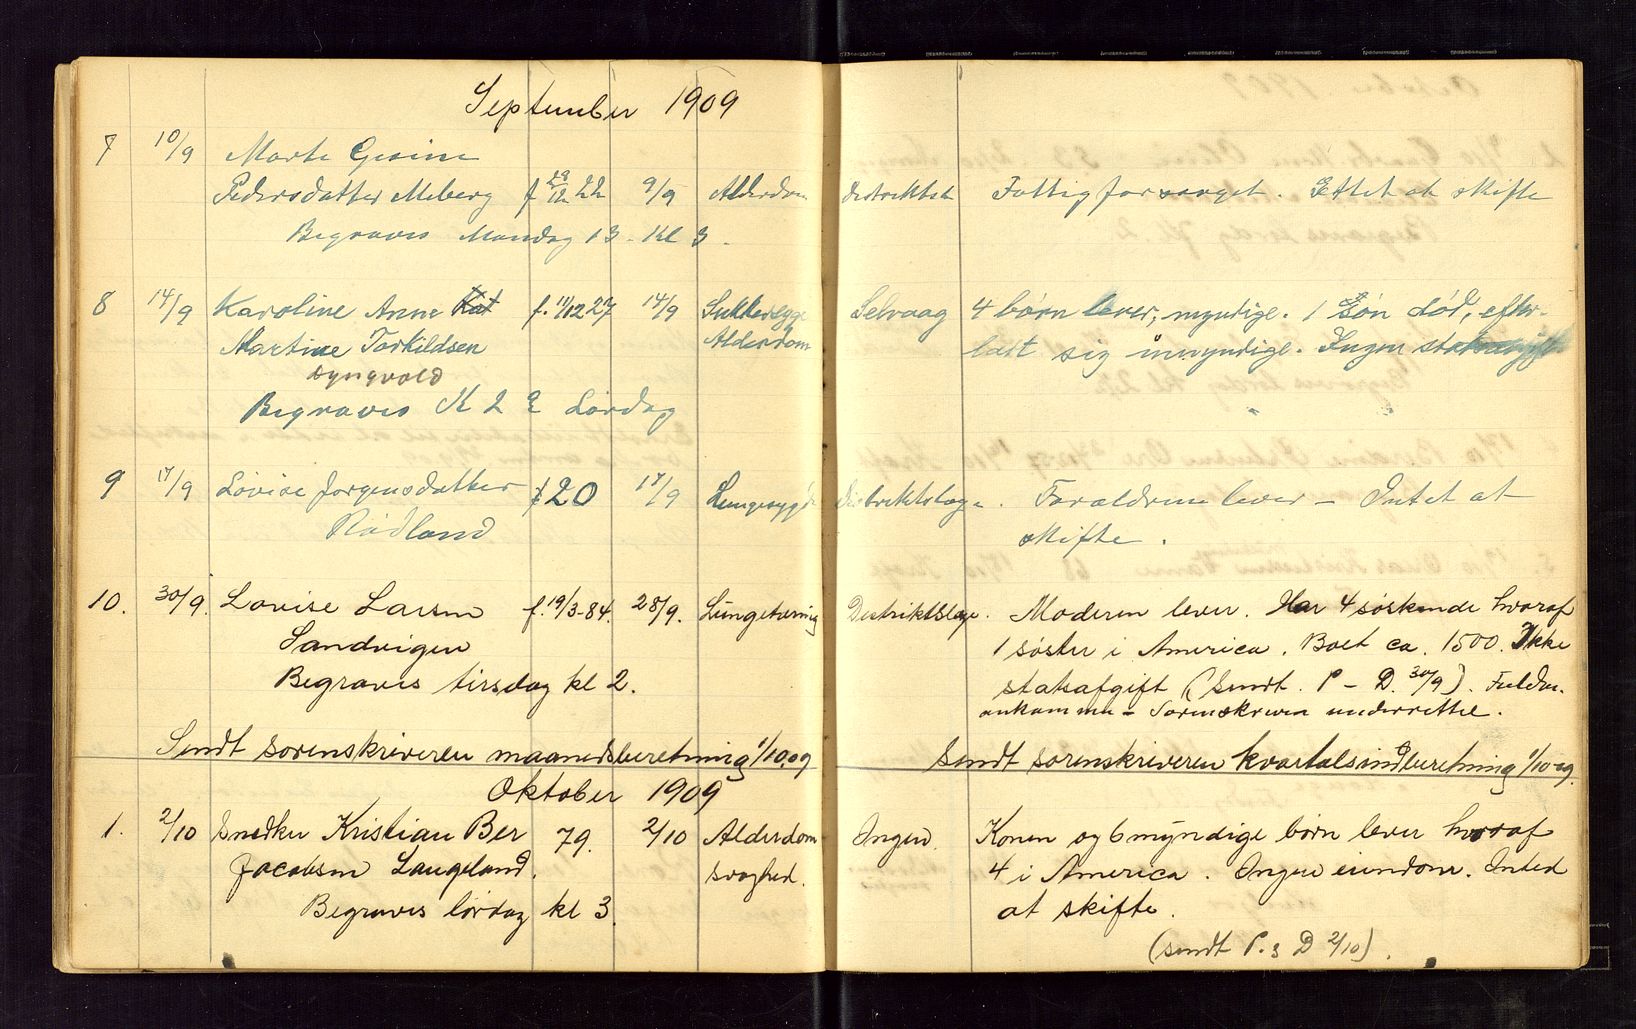 September 1909
7 10/9 Marte Gesine
Pedersdatter Meberg f 29/12 22 9/9 Alderdom Distriktsl Fattigforsorget. Ettet at skifte
Begraves Mandag 13. Kl 3.
8 14/9 Karoline Anne Kat f. 11/12 27 14/9 Sukkersyge Selvaag 4 børn lever, myndige. 1 Søn død, efter-
Martine Torkildsen Alderdom latt sig umyndige. Ingen statsafgift
Syngvald
Begraves K 2 Lördag
9 17/9 Lovise Jorgensdatter f 20 17/9 Lungesygd Distriktslæge. Foraldrene lever – Intet at
Rødland skifte.
10. 30/9. Lovise Larsen f. 19/3-84. 28/9. Lungetæring Distriktslæge. Moderen lever. Har 4 søskende hvoraf
Sandvigen 1 søster i America. Boet ca. 1500. Ikke
Begraves tirsdag kl 2. statsafgift (sendt. P – D. 30/9). Fuldm.
ankommer – Sorenskriveren underrettet.
Sendt sorenskriveren maanedsberetning 1/10.09 Sendt sorenskriveren kvartalsindberetning 1/10-09.
Oktober 1909
1. 2/10 Snedker Kristian Ber 79. 2/10 Alderdom Ingen. Konen og 6 myndige børn lever hvoraf
Jacobsen Langeland. svaghed. 4 i America. Ingen eiendom. Inted
Begraves lørdag kl 3. at skifte.
(sendt P. & D 2/10).